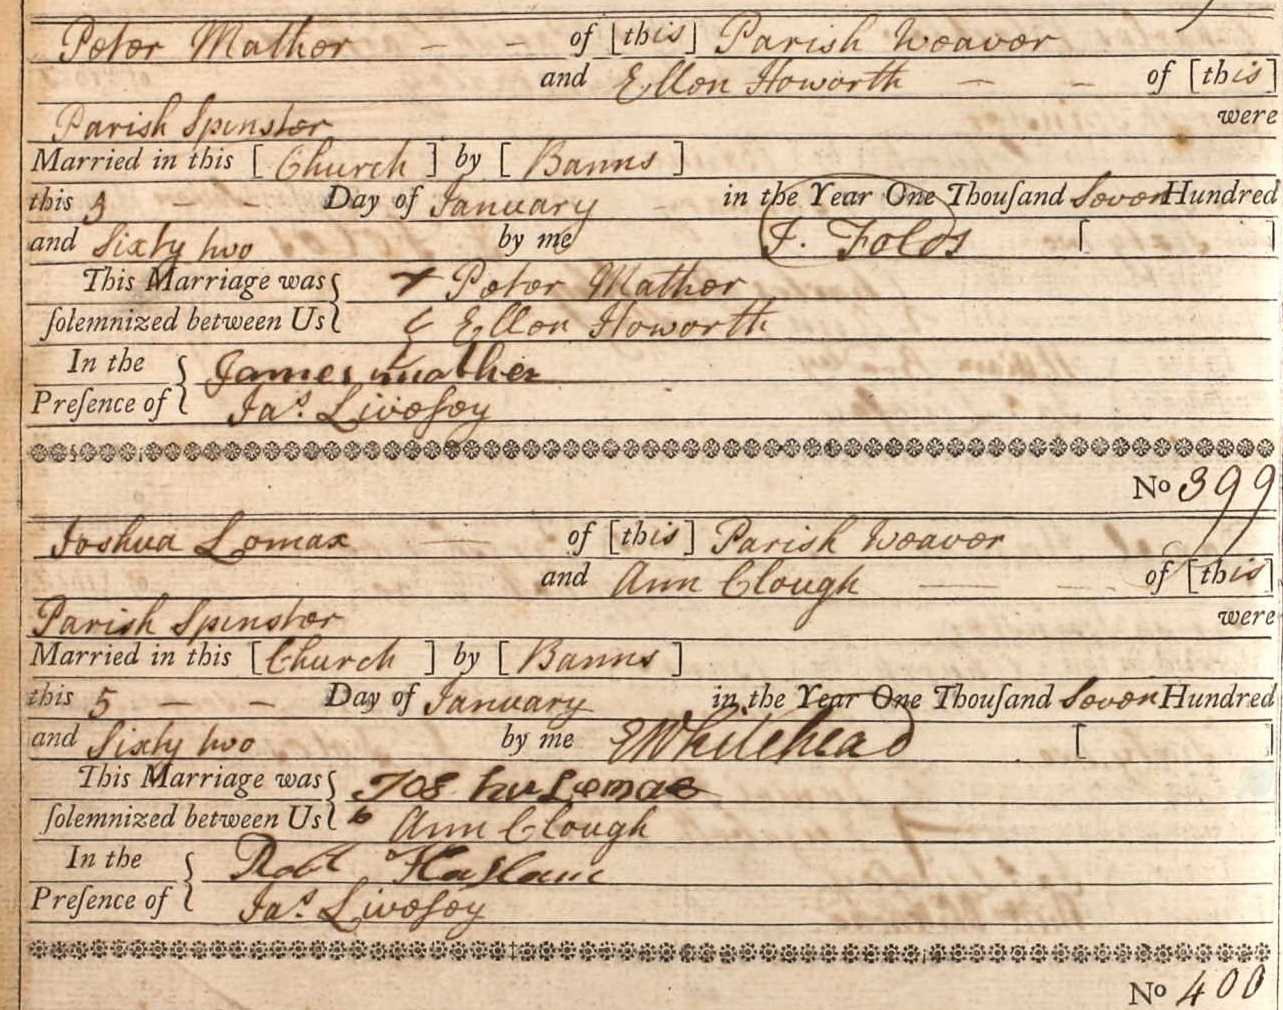 Peter Mather — — of [this] Parish Weaver
and Ellen Howorth — — of [this]
Parish Spinster were
Married in this [Church] by [Banns]
this 3 — — Day of January — in the Year One Thouſand Seven Hundred
and Sixty two by me J. Folds [ ]
This Marriage was { × Peter Mather
ſolemnized between Us { Ellen Howorth
In the { James mather
Preſence of { Jas. Liveſey
No 399
Joshua Lomax — of [this] Parish Weaver
and Ann Clough — — of [this]
Parish Spinster were
Married in this [Church] by [Banns]
this 5 — — Day of January in the Year One Thouſand Seven Hundred
and Sixty two by me EWhitehead [ ]
This Marriage was { Jos
ſolemnized between Us { Ann Clough
In the { Robt Haſlam
Preſence of { Jas. Liveſey
No 400